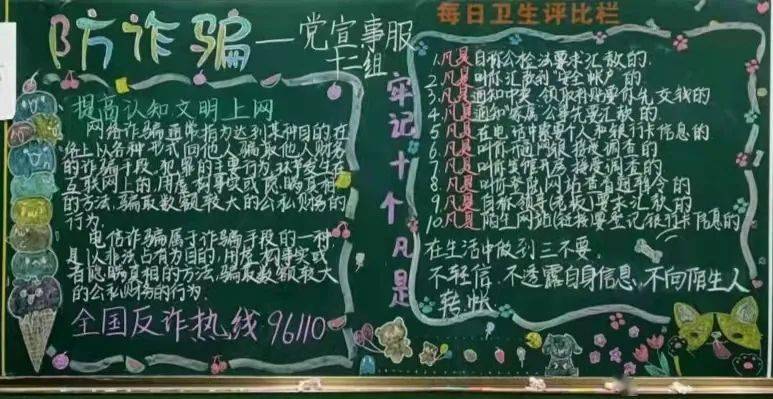 防诈骗—党宣事服
十二组
每日卫生评比栏
提高认知文明上网
网络诈骗通常指为达到某种目的在
络上以各种形式向他人骗取他人财务
的诈骗手段.犯罪的主要行为.环节发生在
互联网上的,用虚构事实或隐瞒真相
的方法,骗取数额较大的公私财务的
行为.
电信诈骗属于诈骗手段的一种
是以非法占有为目的,用虚构事实或
者隐瞒真相的方法,骗取数额较大
的公私财务的行为.
全国反诈热线96110
牢记十个凡是
1.凡是自称公检法要求汇款的.
2.凡是叫你汇款到"安全帐户"的
3.凡是通知中奖、领取补贴要你先交钱的
4.凡是通知"家属"出事先要汇款的.
5.凡是在电话中索要个人和银行卡信息的
6.凡是叫你开通网银接受调查的
7.凡是叫你宾馆开房接受调查的
8.凡是叫你登陆网站查看通缉令的
9.凡是自称领导(老板)要求汇款的
10.凡是陌生网站(链接)要登记银行卡信息的
在生活中做到三不要.
不轻信.不透露自身信息.不向陌生人
转帐